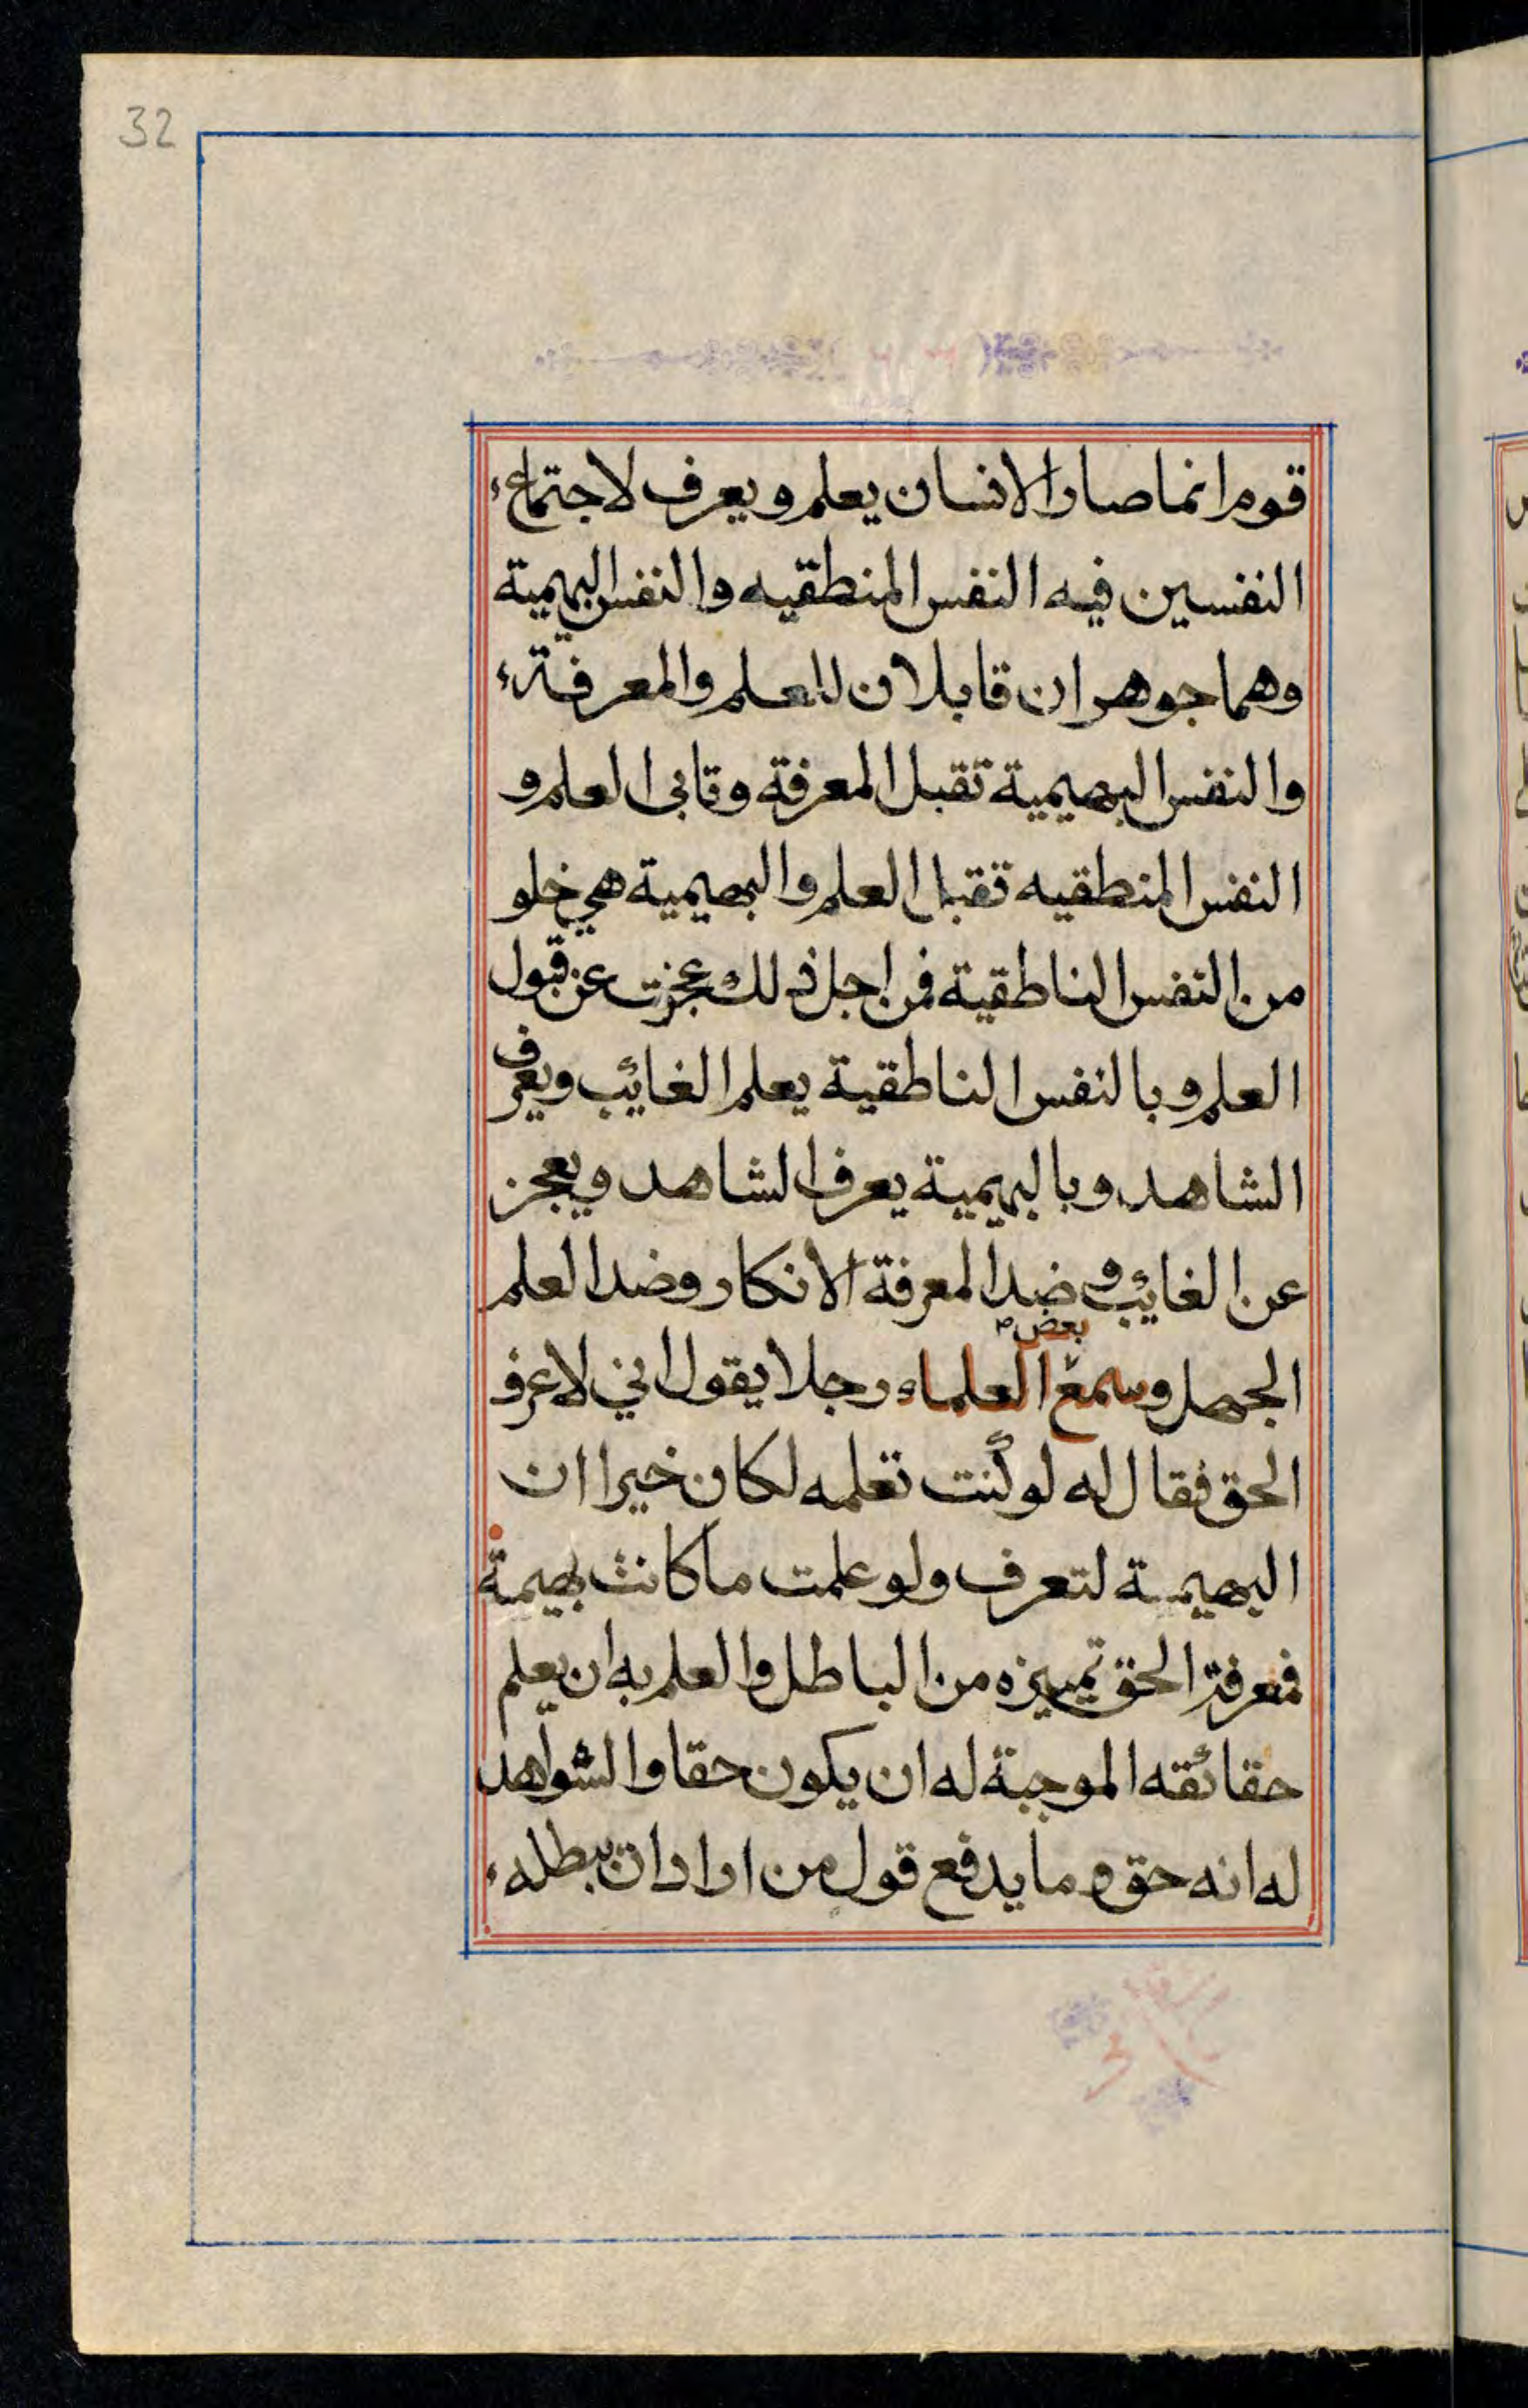 32
قوم انما صار الانسان يعلم ويعرف لاجتماع
النفسين فيه النفس المنطقيه والنفس البهيمية
وهما جوهران قابلان للعلم والمعرفة
والنفس البهيمية تقبل المعرفة وتابى العلم و
النفس المنطقيه تقبل العلم والبهيمية هي خلو
من النفس الناطقية فمن اجل ذلك عجزت عن قبول
العلم وبالنفس الناطقية يعلم الغائب ويعرف
الشاهد وبالبهيمية يعرف الشاهد ويعجز
عن الغائب وضد المعرفة الانكار وضد العلم
الجهل وسمع بعض العلماء رجلا يقول اني لاعرف
الحق فقال له لو كنت تعلمه لكان خيرا ان
البهيمة لتعرف ولو علمت ما كانت بهيمة
فمعرفة الحق تمييزه من الباطل والعلم به ان يعلم
حقائقه الموجبة له ان يكون حقا والشواهد
له انه حق وما يدفع قول من اراد ان يبطله